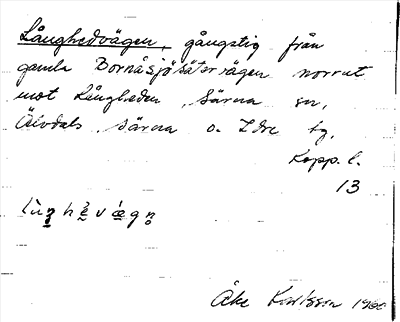 Långhedvägen, gångstig från
gamla Bornåsjösätervägen norrut
mot Långheden, Särna sn,
Älvdals, Särna o. Idre tg,
Kopp. l.
13
Åke Karlsson 1960